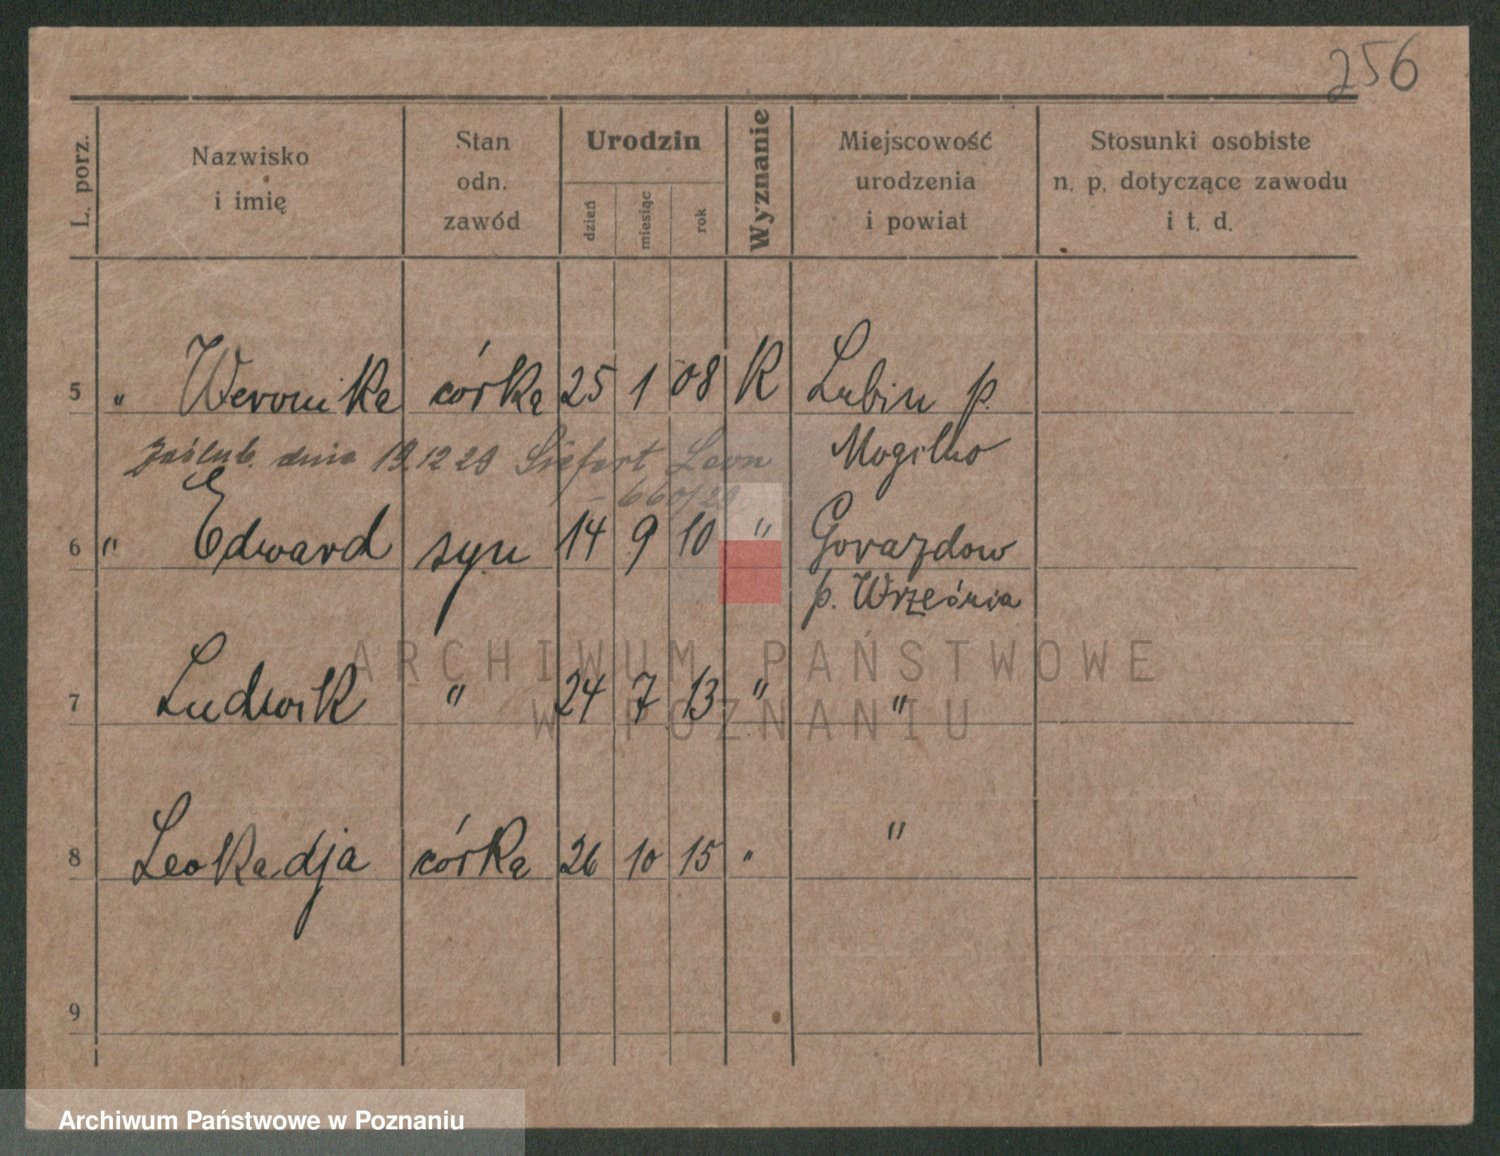 256
L. porz.
Nazwisko
i imię
Stan
odn.
zawód
Urodzin
dzień
miesiąc
rok
Wyznanie
Miejscowość
urodzenia
i powiat
Stosunki osobiste
n. p. dotyczące zawodu
i t. d.
5 " Weronika córka 25 1 08 K Lubin p.
zaślub. dnia 19.12.29 Siefert Leon Mogilno
- 660/29
6 " Edward syn 14 9 10 " Gorazdow
p. Września
7 Ludwik " 24 7 13 " "
8 Leokadja córka 26 10 15 " "
9
ARCHIWUM PAŃSTWOWE
W POZNANIU
Archiwum Państwowe w Poznaniu